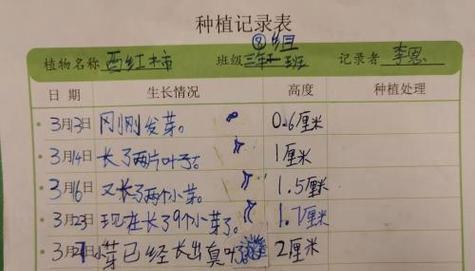 种植记录表
⑧组
植物名称 西红柿 班级 三年 班 记录者 李恩
日 期 生长情况 高度 种植处理
3月13日 冈刂冈刂发芽。 0.6厘米
3月14日 长了两片叶子。 1厘米
3月16日 又长了两个小芽。 1.5厘米
3月23日 现在长了9个小芽了。 1.7厘米
小芽已经长出真叶 2厘米